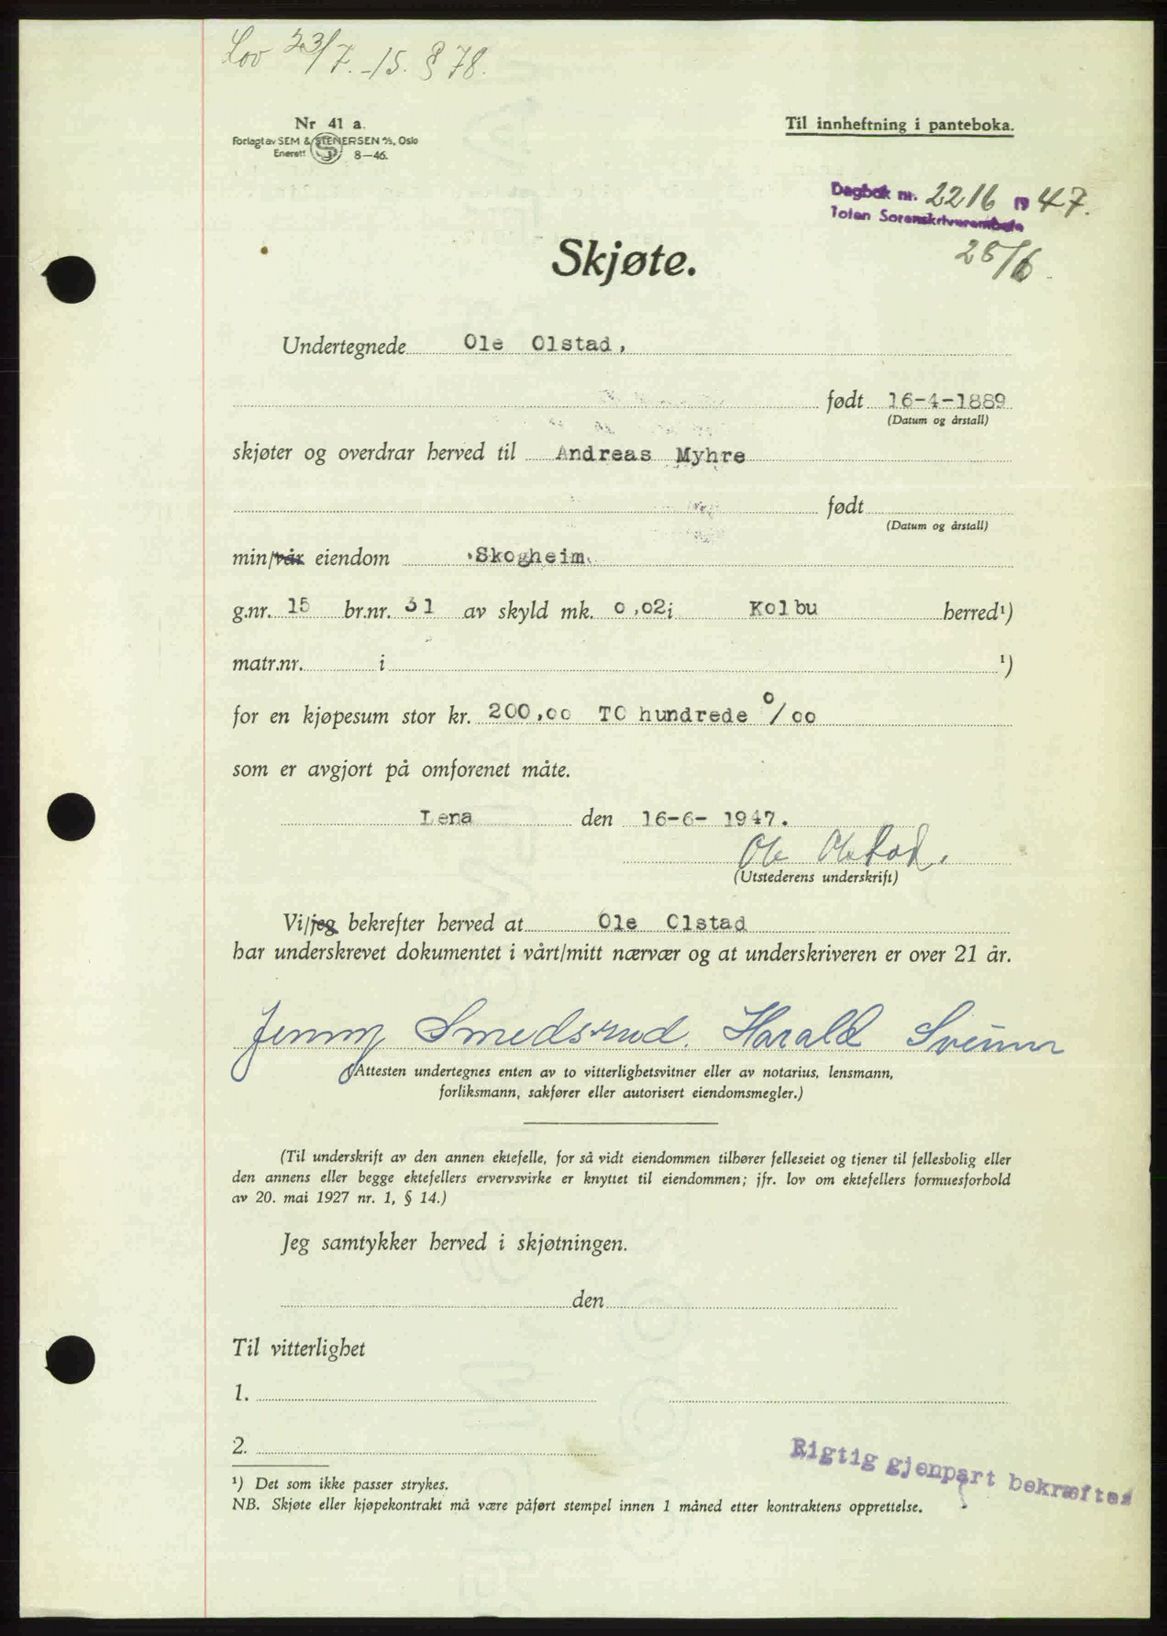 Lov 23/7.-15. § 78.
Nr 41 a.
Forlagt av SEM & STENERSEN A/S, Oslo
Enerett 8—46.
Til innheftning i panteboka.
Dagbok nr. 2216 1947.
Toten Sorenskriverembete
28/6.
Skjøte.
Undertegnede Ole Olstad,
født 16-4-1889
(Datum og årstall)
skjøter og overdrar herved til Andreas Myhre
født
(Datum og årstall)
min/vår eiendom "Skogheim"
g.nr. 15 br.nr. 31 av skyld mk. 0,02 i Kolbu herred¹)
matr.nr. i ¹)
for en kjøpesum stor kr. 200,00 TO hundrede 0/00
som er avgjort på omforenet måte.
Lena den 16-6- 1947.
Ole Olstad.
(Utstederens underskrift)
Vi/jeg bekrefter herved at Ole Olstad
har underskrevet dokumentet i vårt/mitt nærvær og at underskriveren er over 21 år.
Jenny Smedsrud. Harald Sveum
(Attesten undertegnes enten av to vitterlighetsvitner eller av notarius, lensmann,
forliksmann, sakfører eller autorisert eiendomsmegler.)
(Til underskrift av den annen ektefelle, for så vidt eiendommen tilhører felleseiet og tjener til fellesbolig eller
den annens eller begge ektefellers ervervsvirke er knyttet til eiendommen; jfr. lov om ektefellers formuesforhold
av 20. mai 1927 nr. 1, § 14.)
Jeg samtykker herved i skjøtningen.
den
Til vitterlighet
1.
2.
Rigtig gjenpart bekræftes
¹) Det som ikke passer strykes.
NB. Skjøte eller kjøpekontrakt må være påført stempel innen 1 måned etter kontraktens opprettelse.